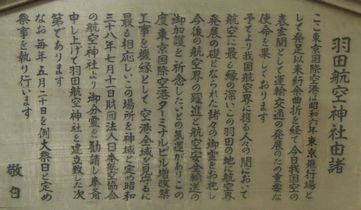 羽田航空神社由緒
ここ東京国際空港は昭和六年東京飛行場と
して発足以来行余曲折を経て今日我国空の
表玄関として運輸交通の発展のため重要な
使命を果しております
予てより我国航空界に携る人々の間において
航空に最も縁の深いこの羽田の地に航空界
発展の礎となられた諸々の御霊をお祀し
今後の航空界の躍進と航空安全輸送の
御加護を祈念したいとの気運があり この
度東京国際空港ターミナルビル増改築
工事を機縁として空港全域を見守るに
最も相応しいこの場所を神域と定め昭和
三十八年七月十一日財団法人日本航空協会
の航空神社より御分霊を勧請し奉斎
申し上げて羽田航空神社を建立致した次
第であります
なお毎年五月二十日を例大祭日と定め
祭事を執り行います
敬白